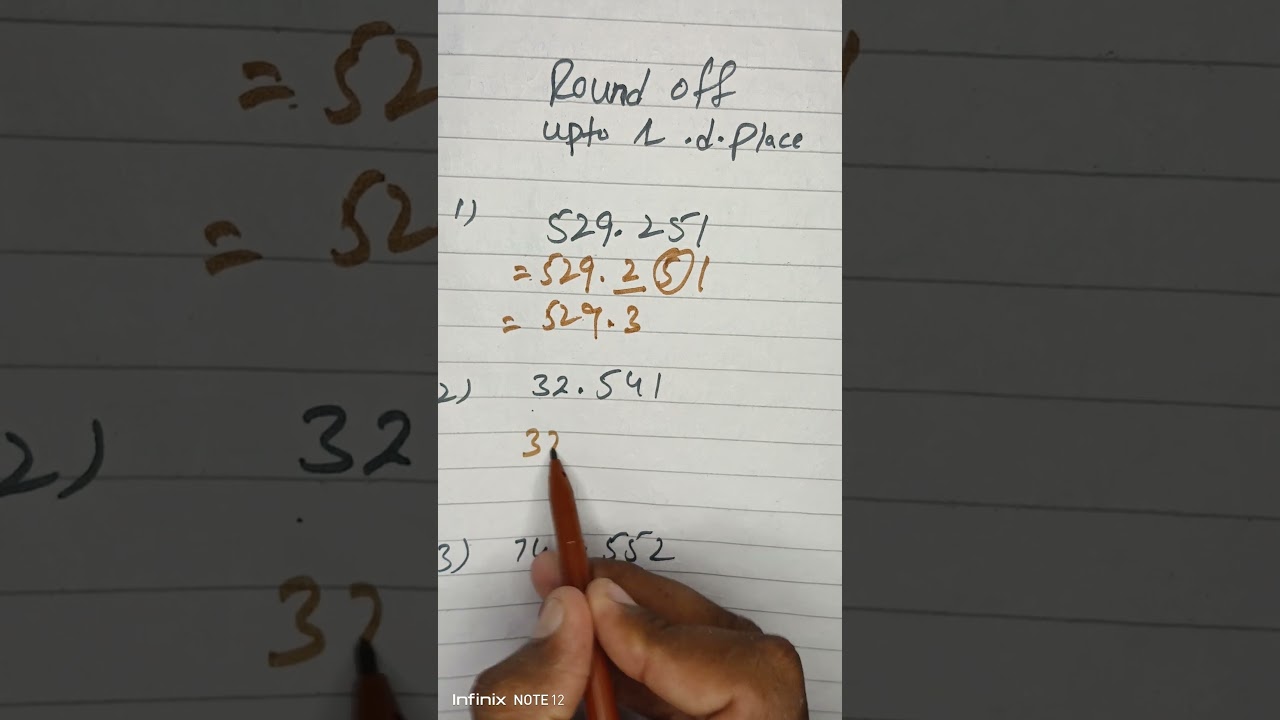 Round off
upto 1 .d.place
1) 529.251
= 529.251
= 529.3
2) 32.541
32
3) .552
Infinix NOTE 12